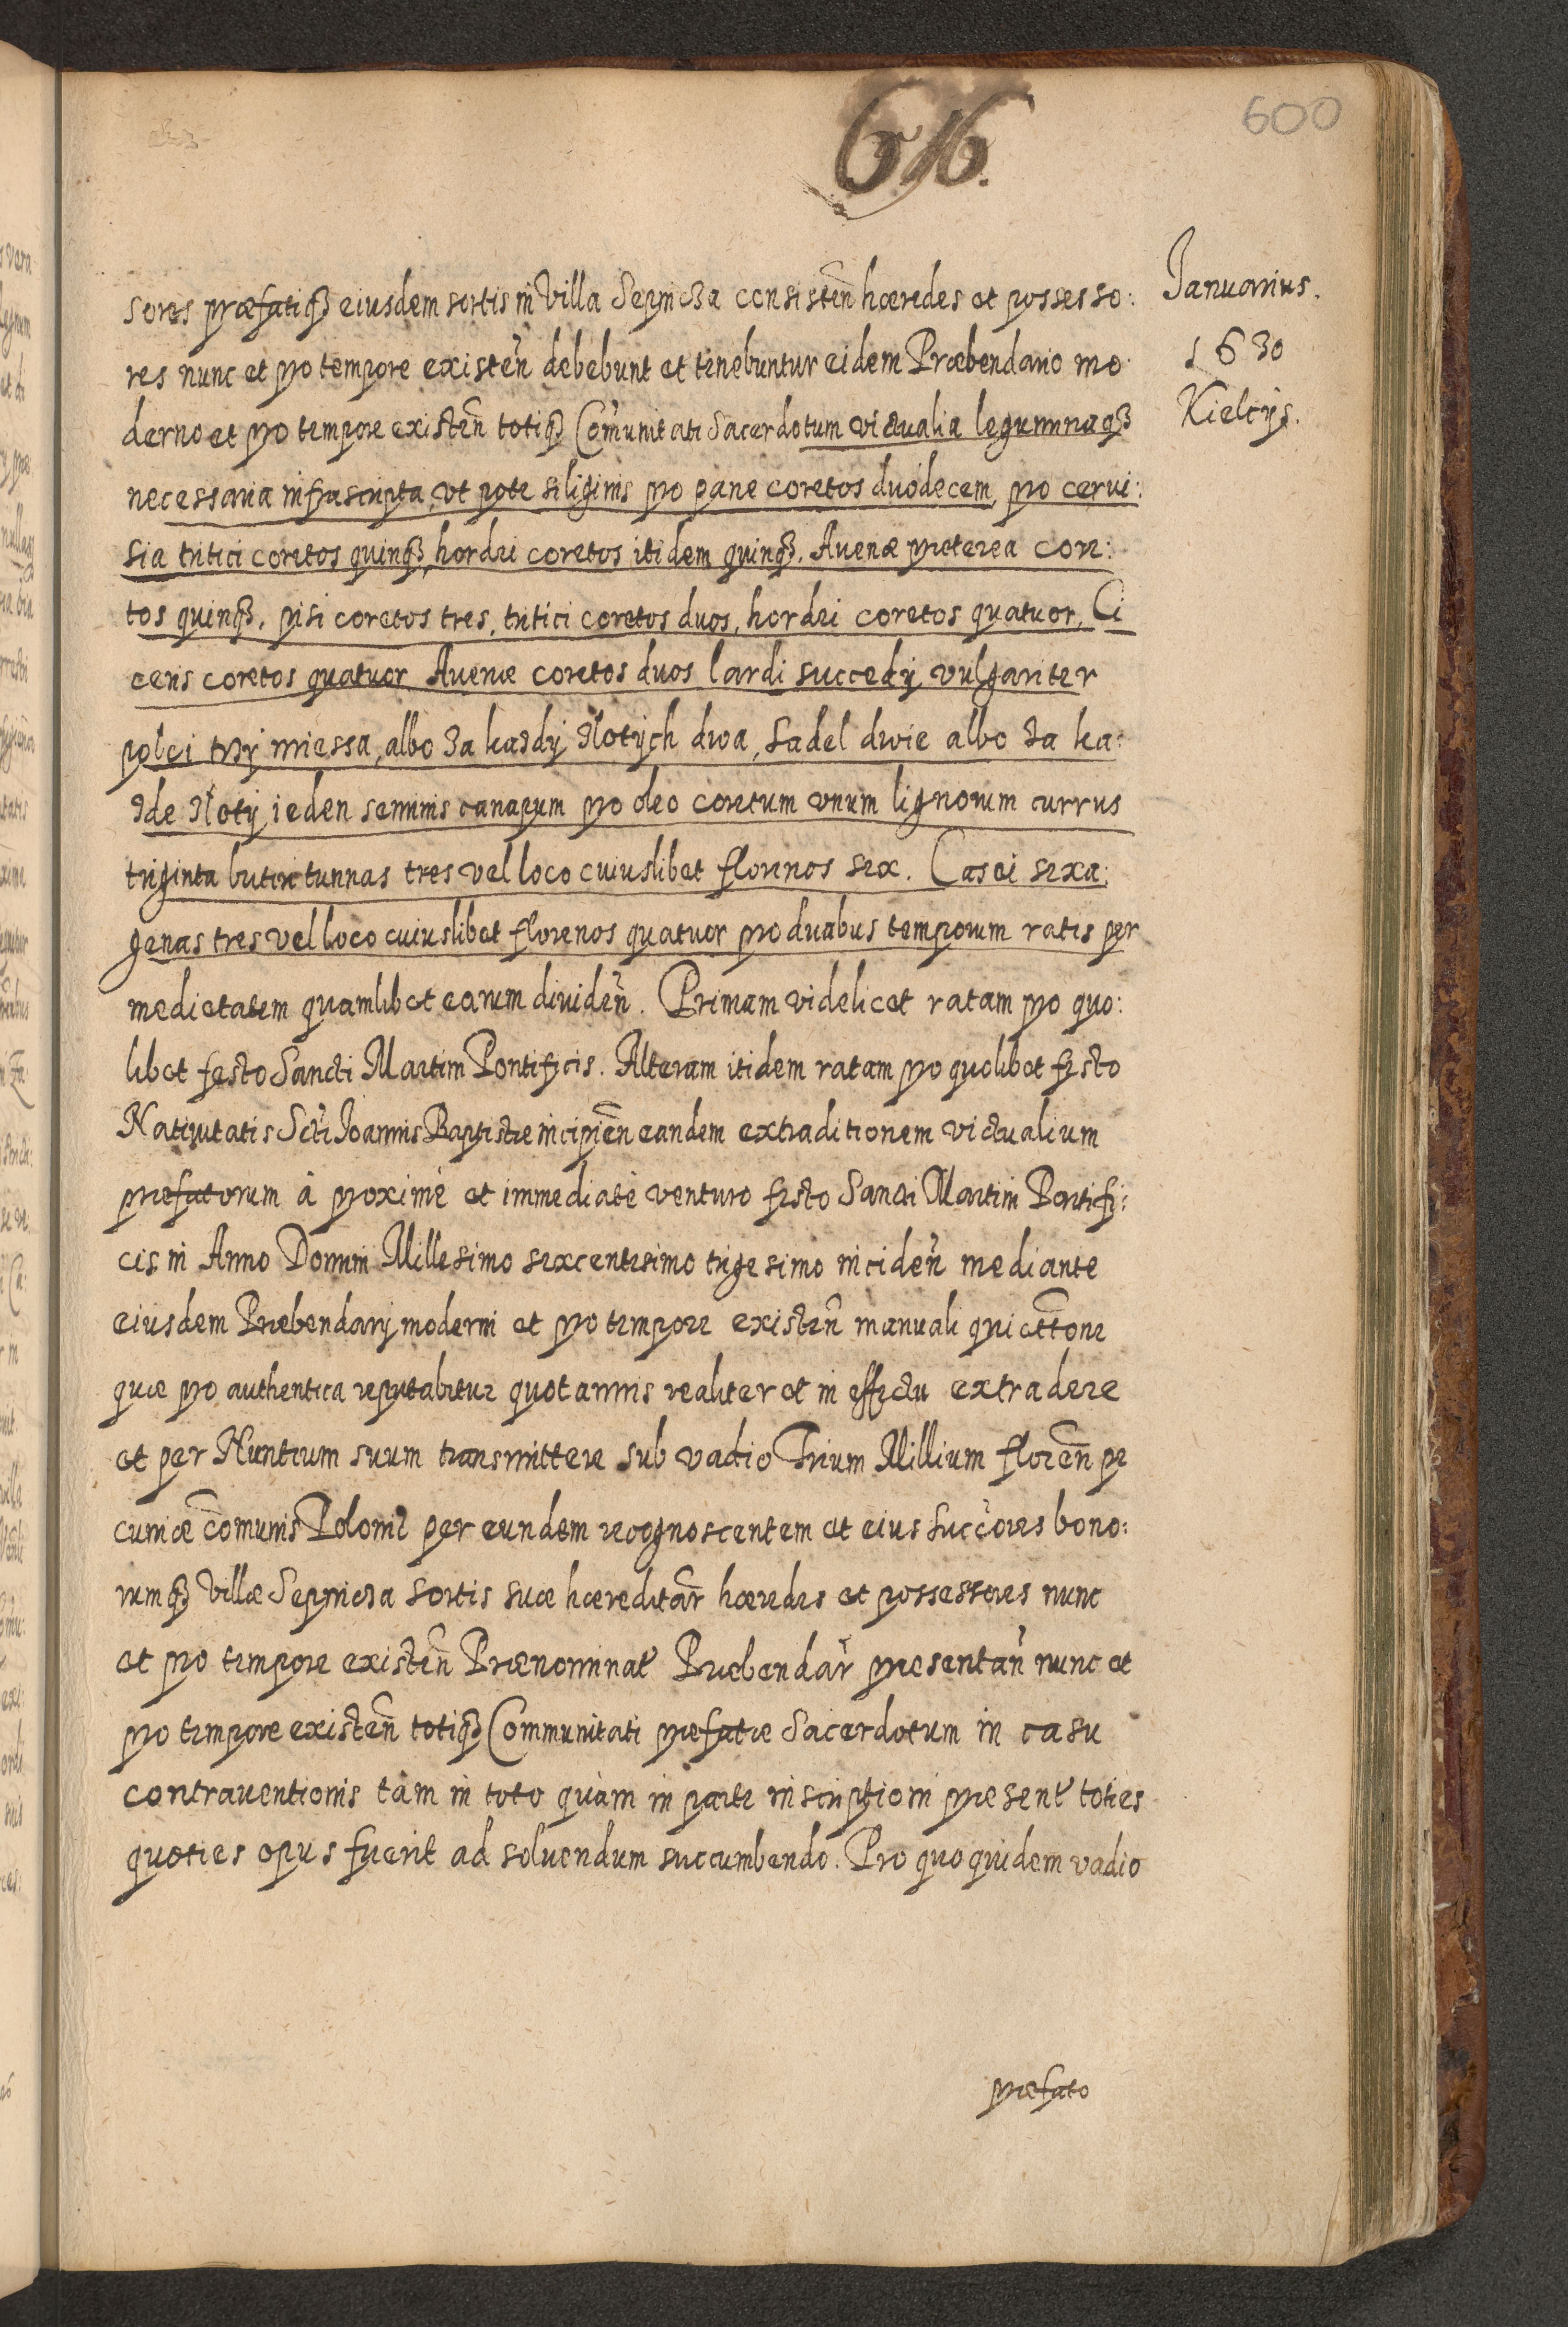 616.
600
Januarius.
1630
Kielcijs.
sores præfatiq3 eiusdem sortis in Villa Sepnicza consisteñ hæredes et possesso:
res nunc et pro tempore existeñ debebunt et tenebuntur eidem Præbendario mo
derno et pro tempore existeñ totiq3 Com̃unitati Sacerdotum victualia leguminaq3
necessaria infrascripta, vt pote siliginis pro pane coretos duodecem, pro cerui:
sia tritici coretos quinq3, hordei coretos itidem quinq3. Auenæ præterea core:
tos quinq3. pisi coretos tres, tritici coretos duos, hordei coretos quatuor, Ci
ceris coretos quatuor Auenæ coretos duos lardi succedij vulgariter
polci trzÿ miessa, albo za kazdÿ złotÿch dwa, Sadel dwie albo za ka:
zde złotÿ ieden seminis canapum pro oleo coretum vnum lignorum currus
triginta butiri tunnas tres vel loco cuiuslibet florenos sex. Casei sexa:
genas tres vel loco cuiuslibet florenos quatuor pro duabus temporum ratis per
medietatem quamlibet earum diuideñ. Primam videlicet ratam pro quo:
libet festo Sancti Martini Pontificis. Alteram itidem ratam pro quolibet festo
Natiuitatis Scti Joannis Baptistæ incipieñ eandem extraditionem victualium
præfatorum à proximè et immediatè venturo festo Sancti Martini Pontifi:
cis in Anno Domini Millesimo sexcentesimo trigesimo incideñ mediante
eiusdem Præbendarij moderni et pro tempore existeñ manuali quiettõne
quæ pro authentica reputabitur quotannis realiter et in effectu extradere
et per Nuntium suum transmittere sub vadio Trium Millium floreñ pe
cuniæ com̃unis Poloniꝫ per eundem recognoscentem et eius succ̃ores bono:
rumq3 Villæ Sepnicza sortis suæ hæreditar̃ hæredes et possessores nunc
et pro tempore existeñ Prænominat̃ Præbendar̃ præsentañ nunc et
pro tempore existeñ totiq3 Communitati præfatæ Sacerdotum in casu
contrauentionis tàm in toto quàm in parte inscriptioni præsent̃ toties
quoties opus fuerit ad soluendum succumbendo. Pro quo quidem vadio
præfato